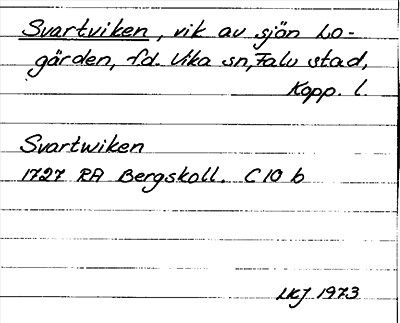 Svartviken, vik av sjön Lo-
gården, fd. Vika sn, Falu stad,
Kopp. l.
Svartwiken
1727 RA Bergskoll. C10 b
LKJ 1973